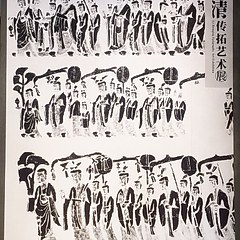 清传拓艺术展